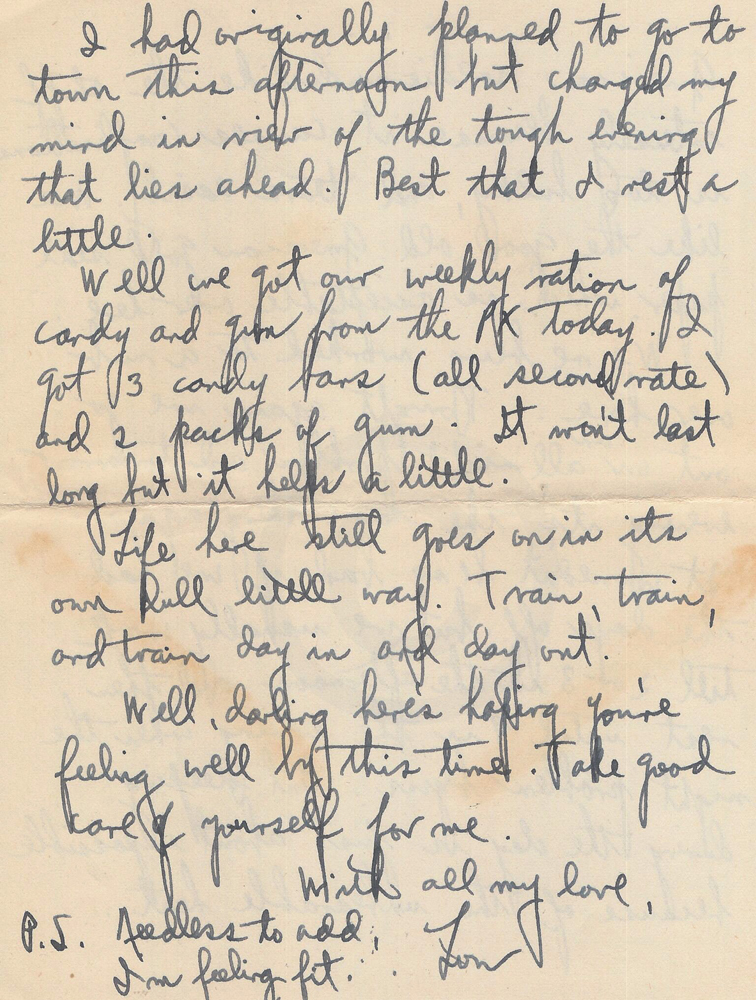 I had originally planned to go to
town this afternoon but changed my
mind in view of the tough evening
that lies ahead. Best that I rest a
little.
Well we got our weekly ration of
candy and gum from the PX today. I
got 3 candy bars (all second rate)
and 2 packs of gum. It won't last
long but it helps a little.
Life here still goes on in its
own dull little way. Train, train,
and train day in and day out.
Well, darling here's hoping you're
feeling well by this time. Take good
care of yourself for me.
With all my love,
Lou
P.S. Needless to add,
I'm feeling fit.